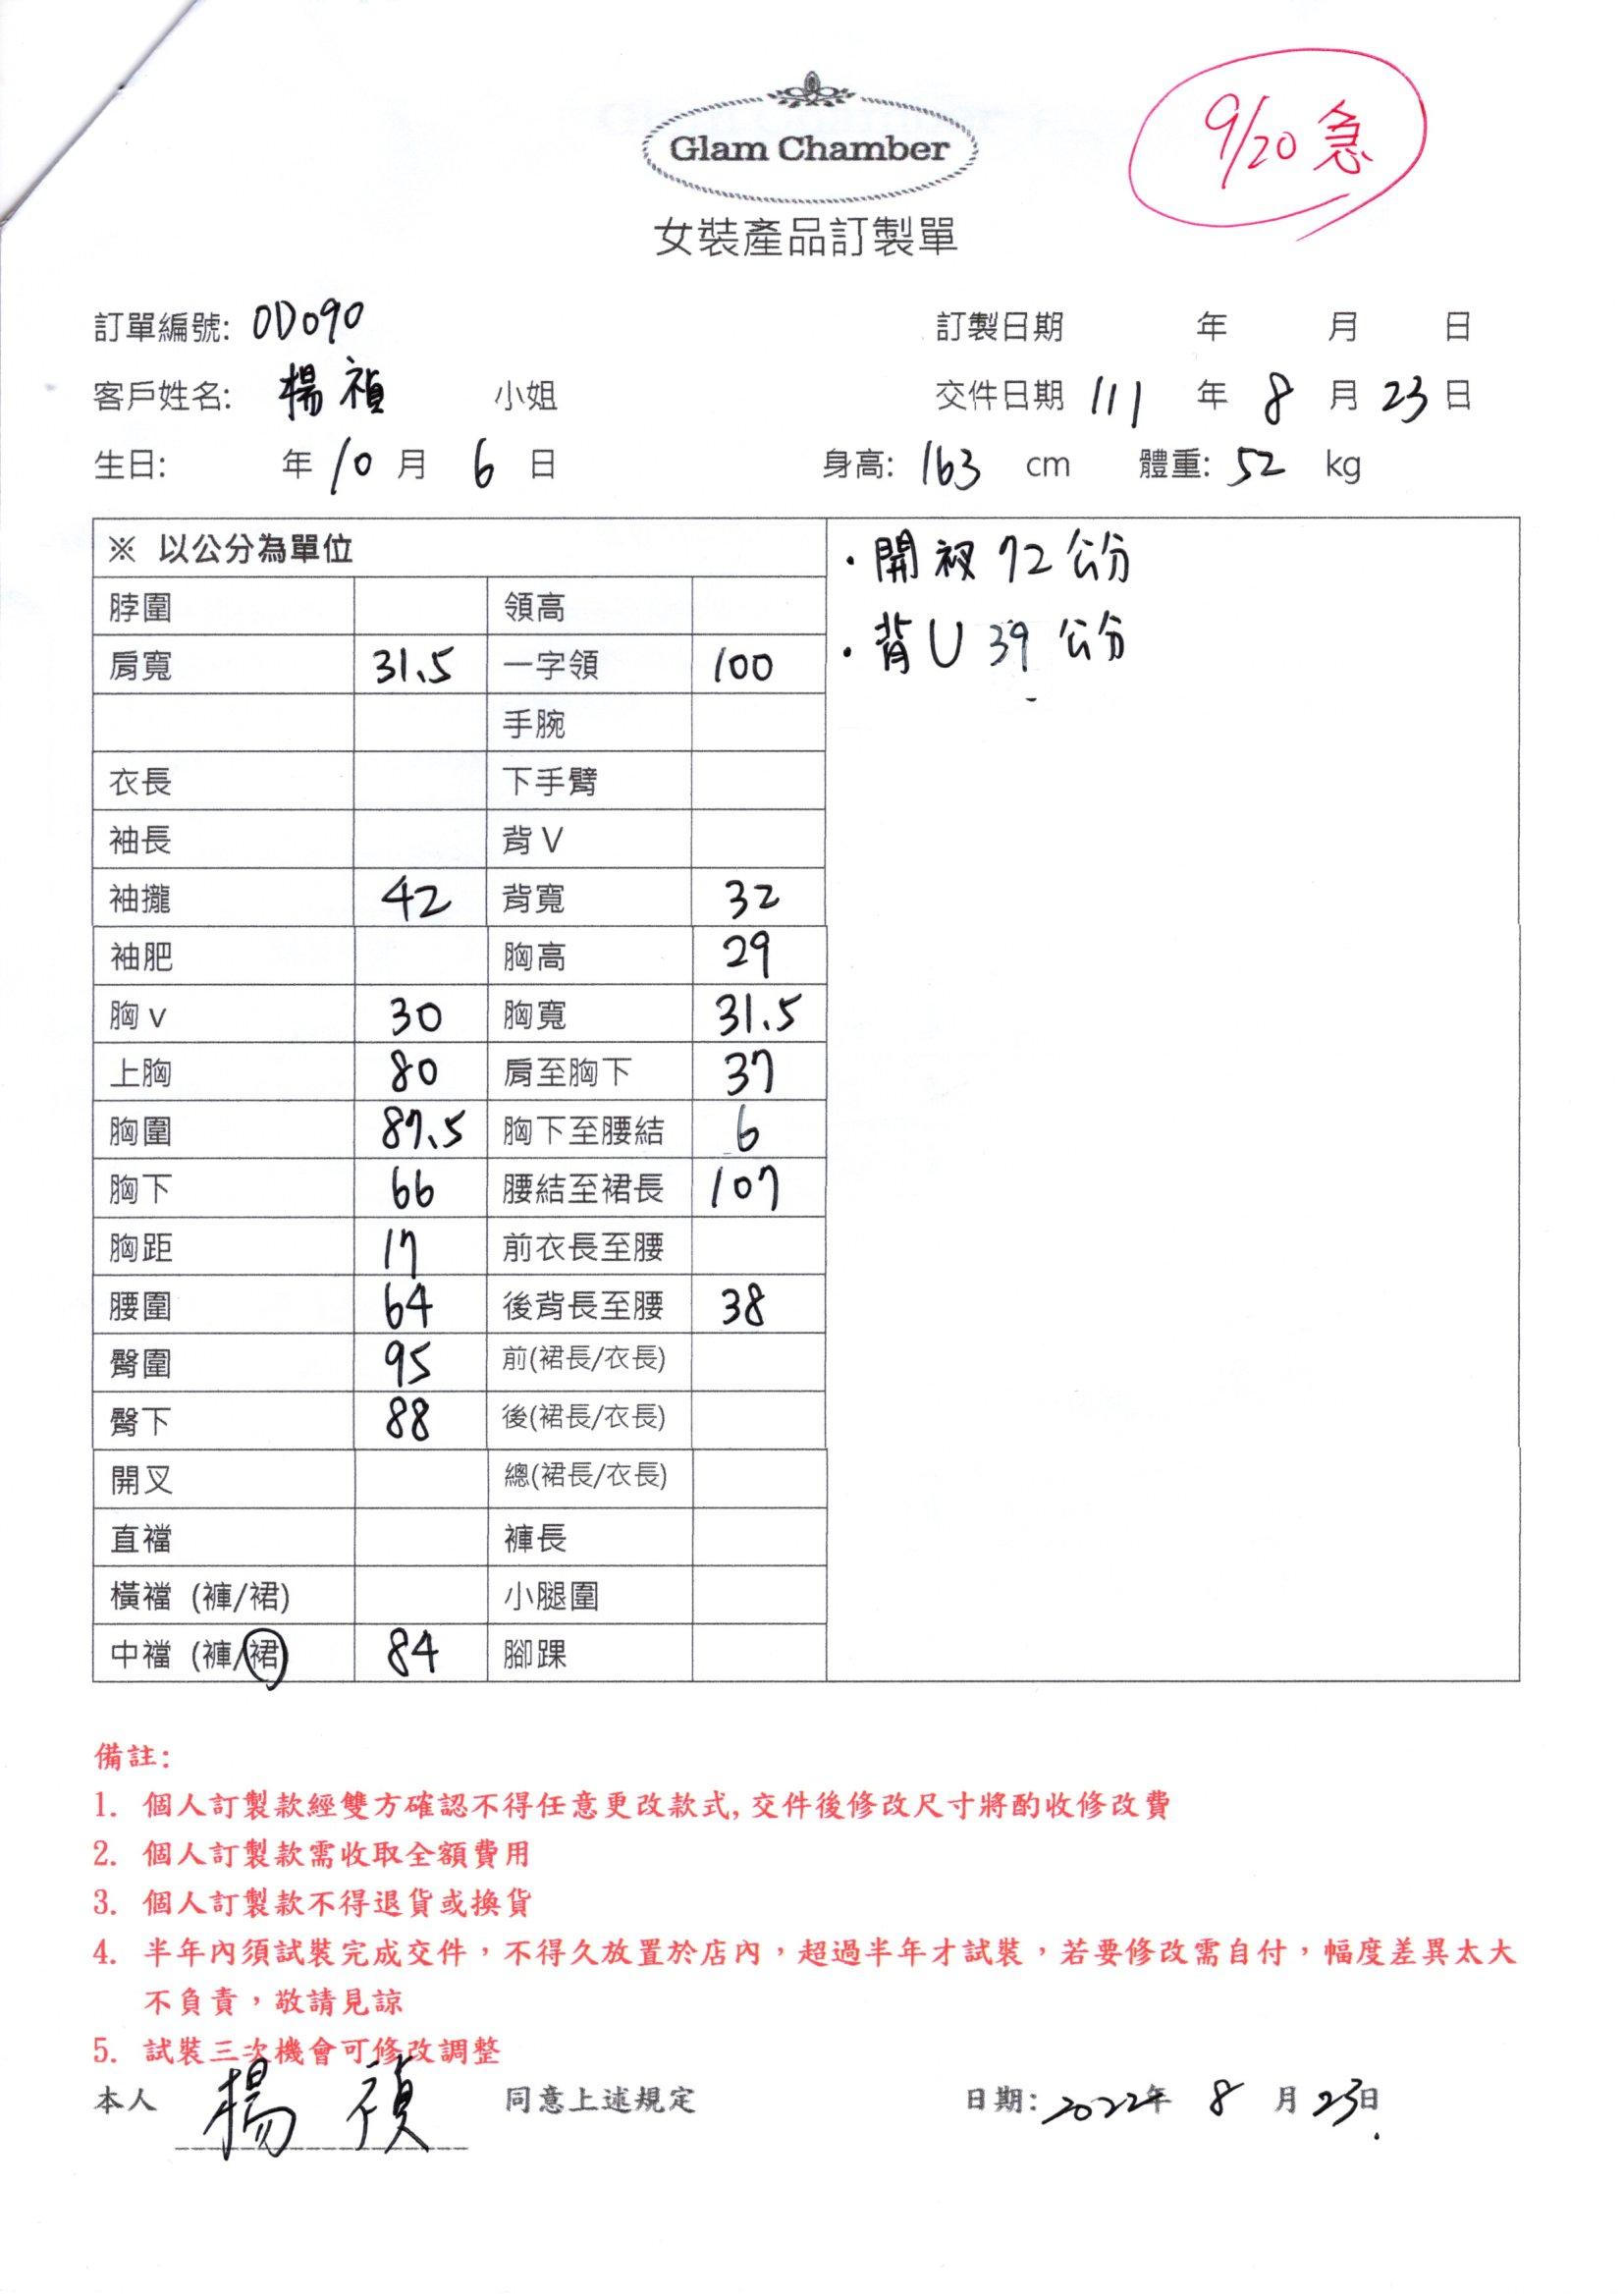 Glam Chamber
9/20 急
女裝產品訂製單
訂單編號: OD090 訂製日期 年 月 日
客戶姓名: 楊禎 小姐 交件日期 111 年 8 月 23 日
生日: 年 10 月 6 日 身高: 163 cm 體重: 52 kg
※ 以公分為單位
・開衩 72 公分
・背U 39 公分
脖圍 領高
肩寬 31.5 一字領 100
手腕
衣長 下手臂
袖長 背V
袖攏 42 背寬 32
袖肥 胸高 29
胸v 30 胸寬 31.5
上胸 80 肩至胸下 37
胸圍 87.5 胸下至腰結 6
胸下 66 腰結至裙長 107
胸距 17 前衣長至腰
腰圍 64 後背長至腰 38
臀圍 95 前(裙長/衣長)
臀下 88 後(裙長/衣長)
開叉 總(裙長/衣長)
直襠 褲長
橫襠 (褲/裙) 小腿圍
中襠 (褲/裙) 84 腳踝
備註:
1. 個人訂製款經雙方確認不得任意更改款式,交件後修改尺寸將酌收修改費
2. 個人訂製款需收取全額費用
3. 個人訂製款不得退貨或換貨
4. 半年內須試裝完成交件，不得久放置於店內，超過半年才試裝，若要修改需自付，幅度差異太大
不負責，敬請見諒
5. 試裝三次機會可修改調整
本人 楊禎 同意上述規定 日期: 2022年 8 月 23日